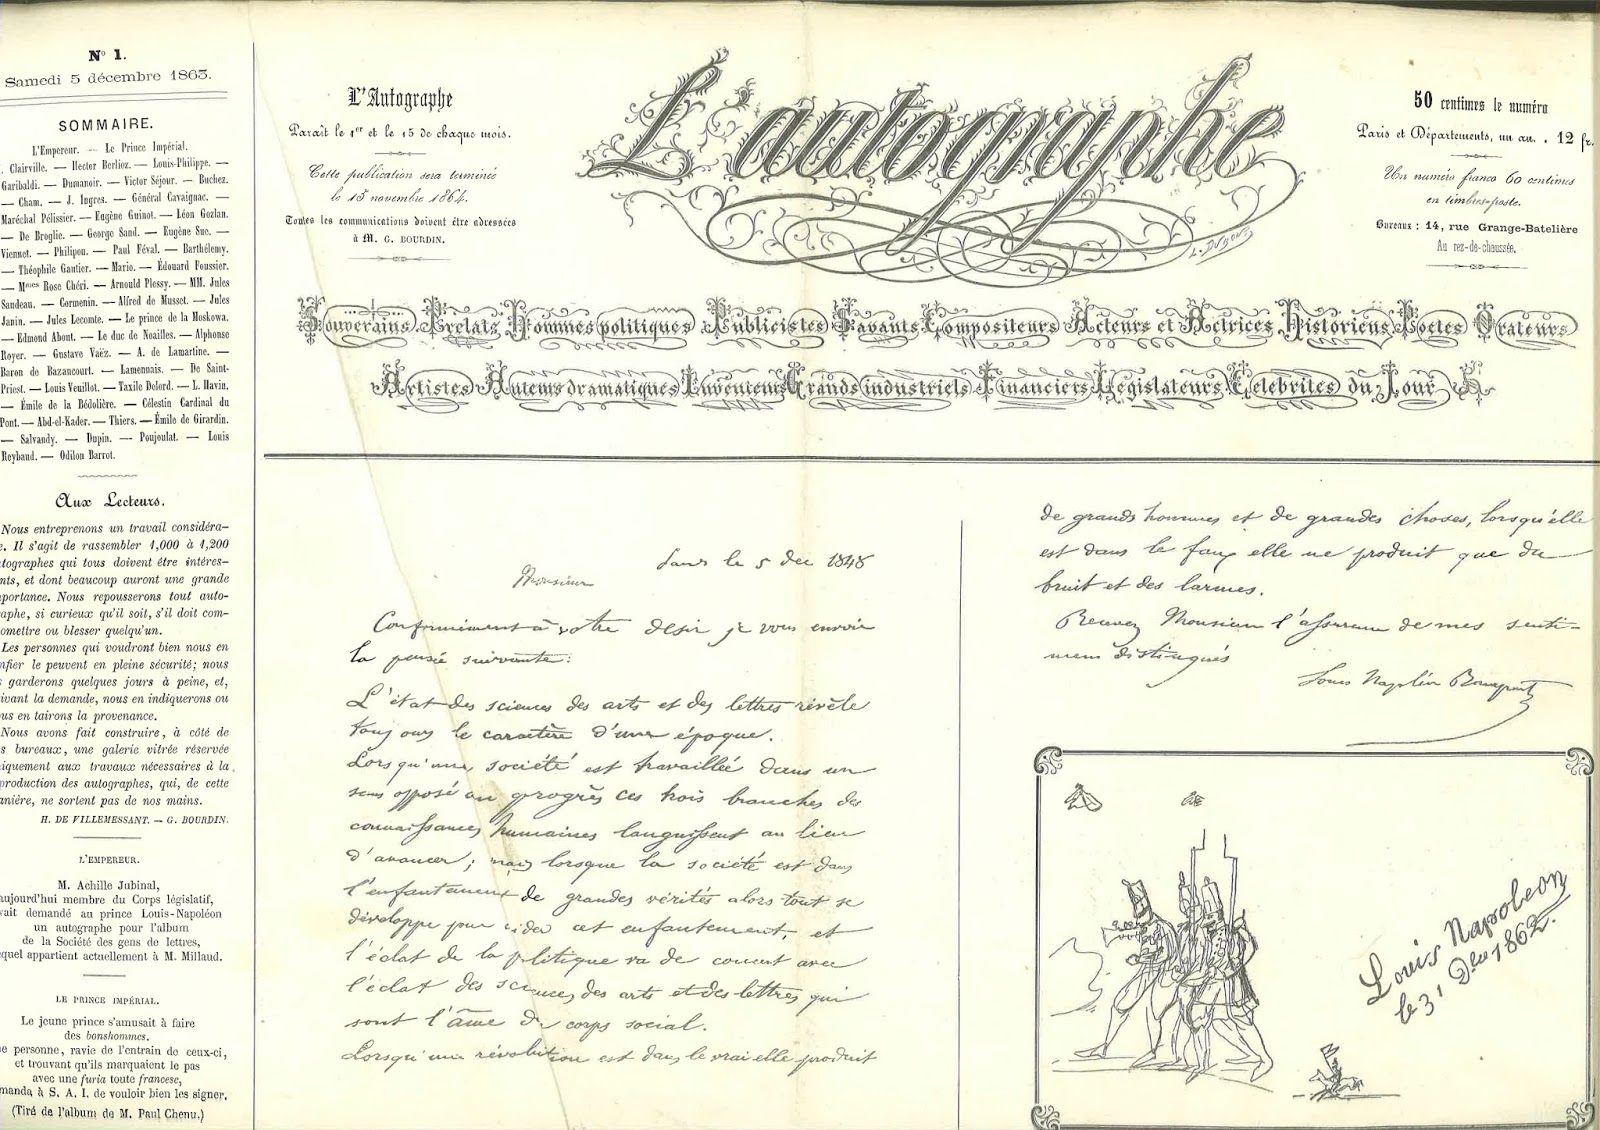 N° 1.
Samedi 5 décembre 1863.
SOMMAIRE.
L'Empereur. — Le Prince Impérial.
. Clairville. — Hector Berlioz. — Louis-Philippe. —
Garibaldi. — Dumanoir. — Victor Séjour. — Buchez.
— Cham. — J. Ingres. — Général Cavaignac. —
Maréchal Pélissier. — Eugène Guinot. — Léon Gozlan.
— De Broglie. — George Sand. — Eugène Sue. —
Viennet. — Philipon. — Paul Féval. — Barthélemy.
— Théophile Gautier. — Mario. — Édouard Foussier.
— Mmes Rose Chéri. — Arnould Plessy. — MM. Jules
Sandeau. — Cormenin. — Alfred de Musset. — Jules
Janin. — Jules Lecomte. — Le prince de la Moskowa.
— Edmond About. — Le duc de Noailles. — Alphonse
Royer. — Gustave Vaëz. — A. de Lamartine. —
Baron de Bazancourt. — Lamennais. — De Saint-
Priest. — Louis Veuillot. — Taxile Delord. — L. Havin.
— Émile de la Bédolière. — Célestin Cardinal du
Pont. — Abd-el-Kader. — Thiers. — Émile de Girardin.
— Salvandy. — Dupin. — Poujoulat. — Louis
Reybaud. — Odilon Barrot.
Aux Lecteurs.
Nous entreprenons un travail considéra-
e. Il s'agit de rassembler 1,000 à 1,200
tographes qui tous doivent être intéres-
nts, et dont beaucoup auront une grande
portance. Nous repousserons tout auto-
aphe, si curieux qu'il soit, s'il doit com-
omettre ou blesser quelqu'un.
Les personnes qui voudront bien nous en
nfier le peuvent en pleine sécurité; nous
s garderons quelques jours à peine, et,
ivant la demande, nous en indiquerons ou
us en tairons la provenance.
Nous avons fait construire, à côté de
s bureaux, une galerie vitrée réservée
iquement aux travaux nécessaires à la
production des autographes, qui, de cette
anière, ne sortent pas de nos mains.
H. DE VILLEMESSANT. — G. BOURDIN.
L'EMPEREUR.
M. Achille Jubinal,
aujourd'hui membre du Corps législatif,
vait demandé au prince Louis-Napoléon
un autographe pour l'album
de la Société des gens de lettres,
quel appartient actuellement à M. Millaud.
LE PRINCE IMPÉRIAL.
Le jeune prince s'amusait à faire
des bonshommes.
e personne, ravie de l'entrain de ceux-ci,
et trouvant qu'ils marquaient le pas
avec une furia toute francese,
manda à S. A. I. de vouloir bien les signer.
(Tiré de l'album de M. Paul Chenu.)
L'Autographe
Paraît le 1er et le 15 de chaque mois.
Cette publication sera terminée
le 15 novembre 1864.
Toutes les communications doivent être adressées
à M. G. BOURDIN.
L'autographe
L. Dugonz
50 centimes le numéro
Paris et Départements, un an. . 12 fr.
Un numéro franco 60 centimes
en timbres-poste.
Bureaux : 14, rue Grange-Batelière
Au rez-de-chaussée.
Souverains Prélats Hommes politiques Publicistes Savants Compositeurs Acteurs et Actrices Historiens Poetes Orateurs
Artistes Auteurs dramatiques Inventeurs Grands industriels Financiers Législateurs Célébrités du Jour &
Paris le 5 dec 1848
Monsieur
Conformément à votre désir je vous envoie
la pensée suivante:
L'état des sciences des arts et des lettres révèle
toujours le caractère d'une époque.
Lorsqu'une société est travaillée dans un
sens opposé au progrès ces trois branches des
connaissances humaines languissent au lieu
d'avancer; mais lorsque la société est dans
l'enfantement de grandes vérités alors tout se
développe pour aider cet enfantement, et
l'éclat de la politique va de concert avec
l'éclat des sciences, des arts et des lettres qui
sont l'âme du corps social.
Lorsqu'une révolution est dans le vrai elle produit
de grands hommes et de grandes choses, lorsqu'elle
est dans le faux elle ne produit que du
bruit et des larmes.
Recevez Monsieur l'assurance de mes senti-
mens distingués
Louis Napoléon Bonaparte
Louis Napoléon
le 31 Dbre 1862.